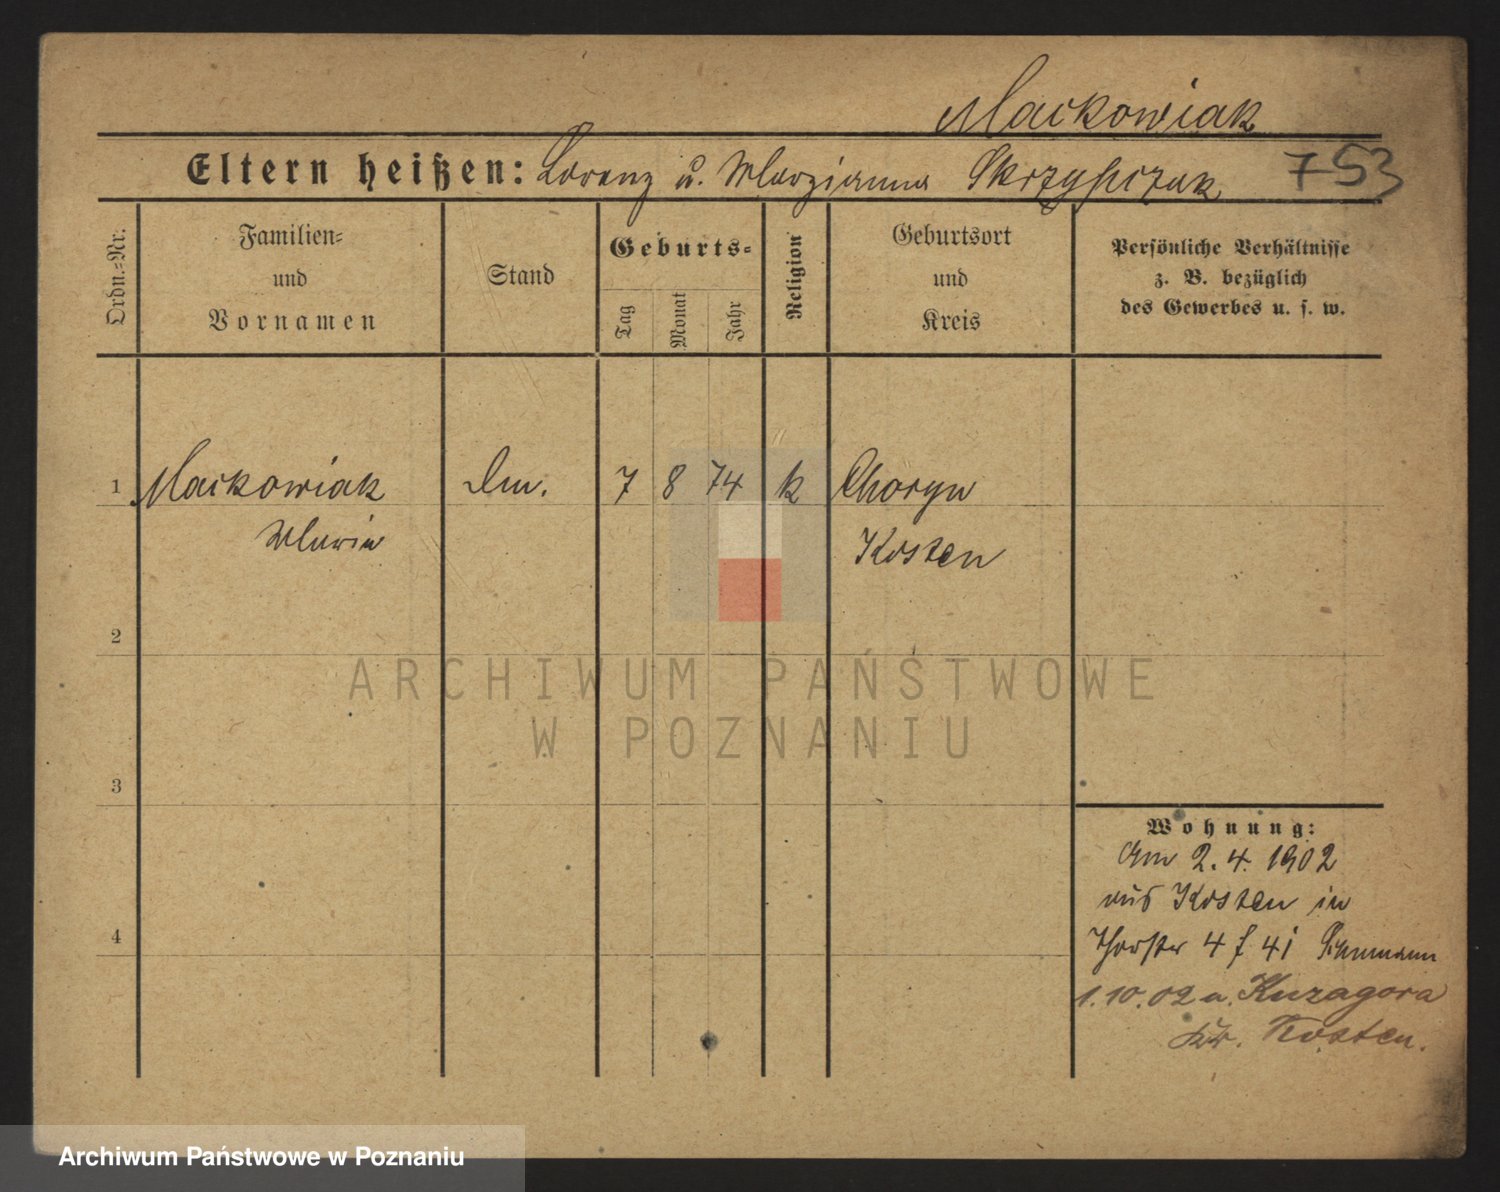 Mackowiak
Eltern heißen: Lorenz u. Marzianna Skrzypczak 753
Ordn.-Nr.
Familien-
und
Vornamen
Stand
Geburts-
Tag
Monat
Jahr
Religion
Geburtsort
und
Kreis
Persönliche Verhältnisse
z. B. bezüglich
des Gewerbes u. s. w.
1 Mackowiak 7 8 74 k Choryn
Maria Kosten
2
ARCHIWUM PAŃSTWOWE
W POZNANIU
3
4
Wohnung:
Am 2.4.1902
aus Kosten in
4 41
1.10.02 n. Kuzagora
Kr. Kosten.
Archiwum Państwowe w Poznaniu